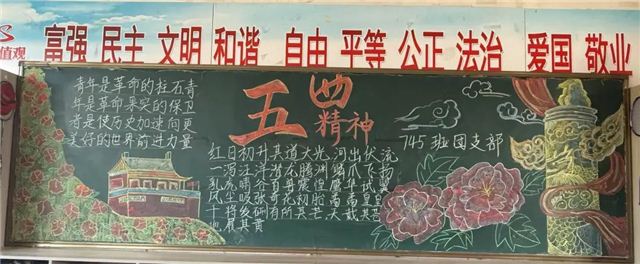 值观 富强 民主 文明 和谐 自由 平等 公正 法治 爱国 敬业
青年是革命的柱石青
年是革命果实的保卫
者是使历史加速向更
美好的世界前进力量
五四
精神
745班团支部
红日初升其道大光 河出伏流
一泻汪洋潜龙腾渊 鳞爪飞扬
乳虎 谷百兽震惶 鹰隼试翼
风尘吸张奇花初胎 皇皇
干将发硎有所其芒 天戴其苍
地履其黄